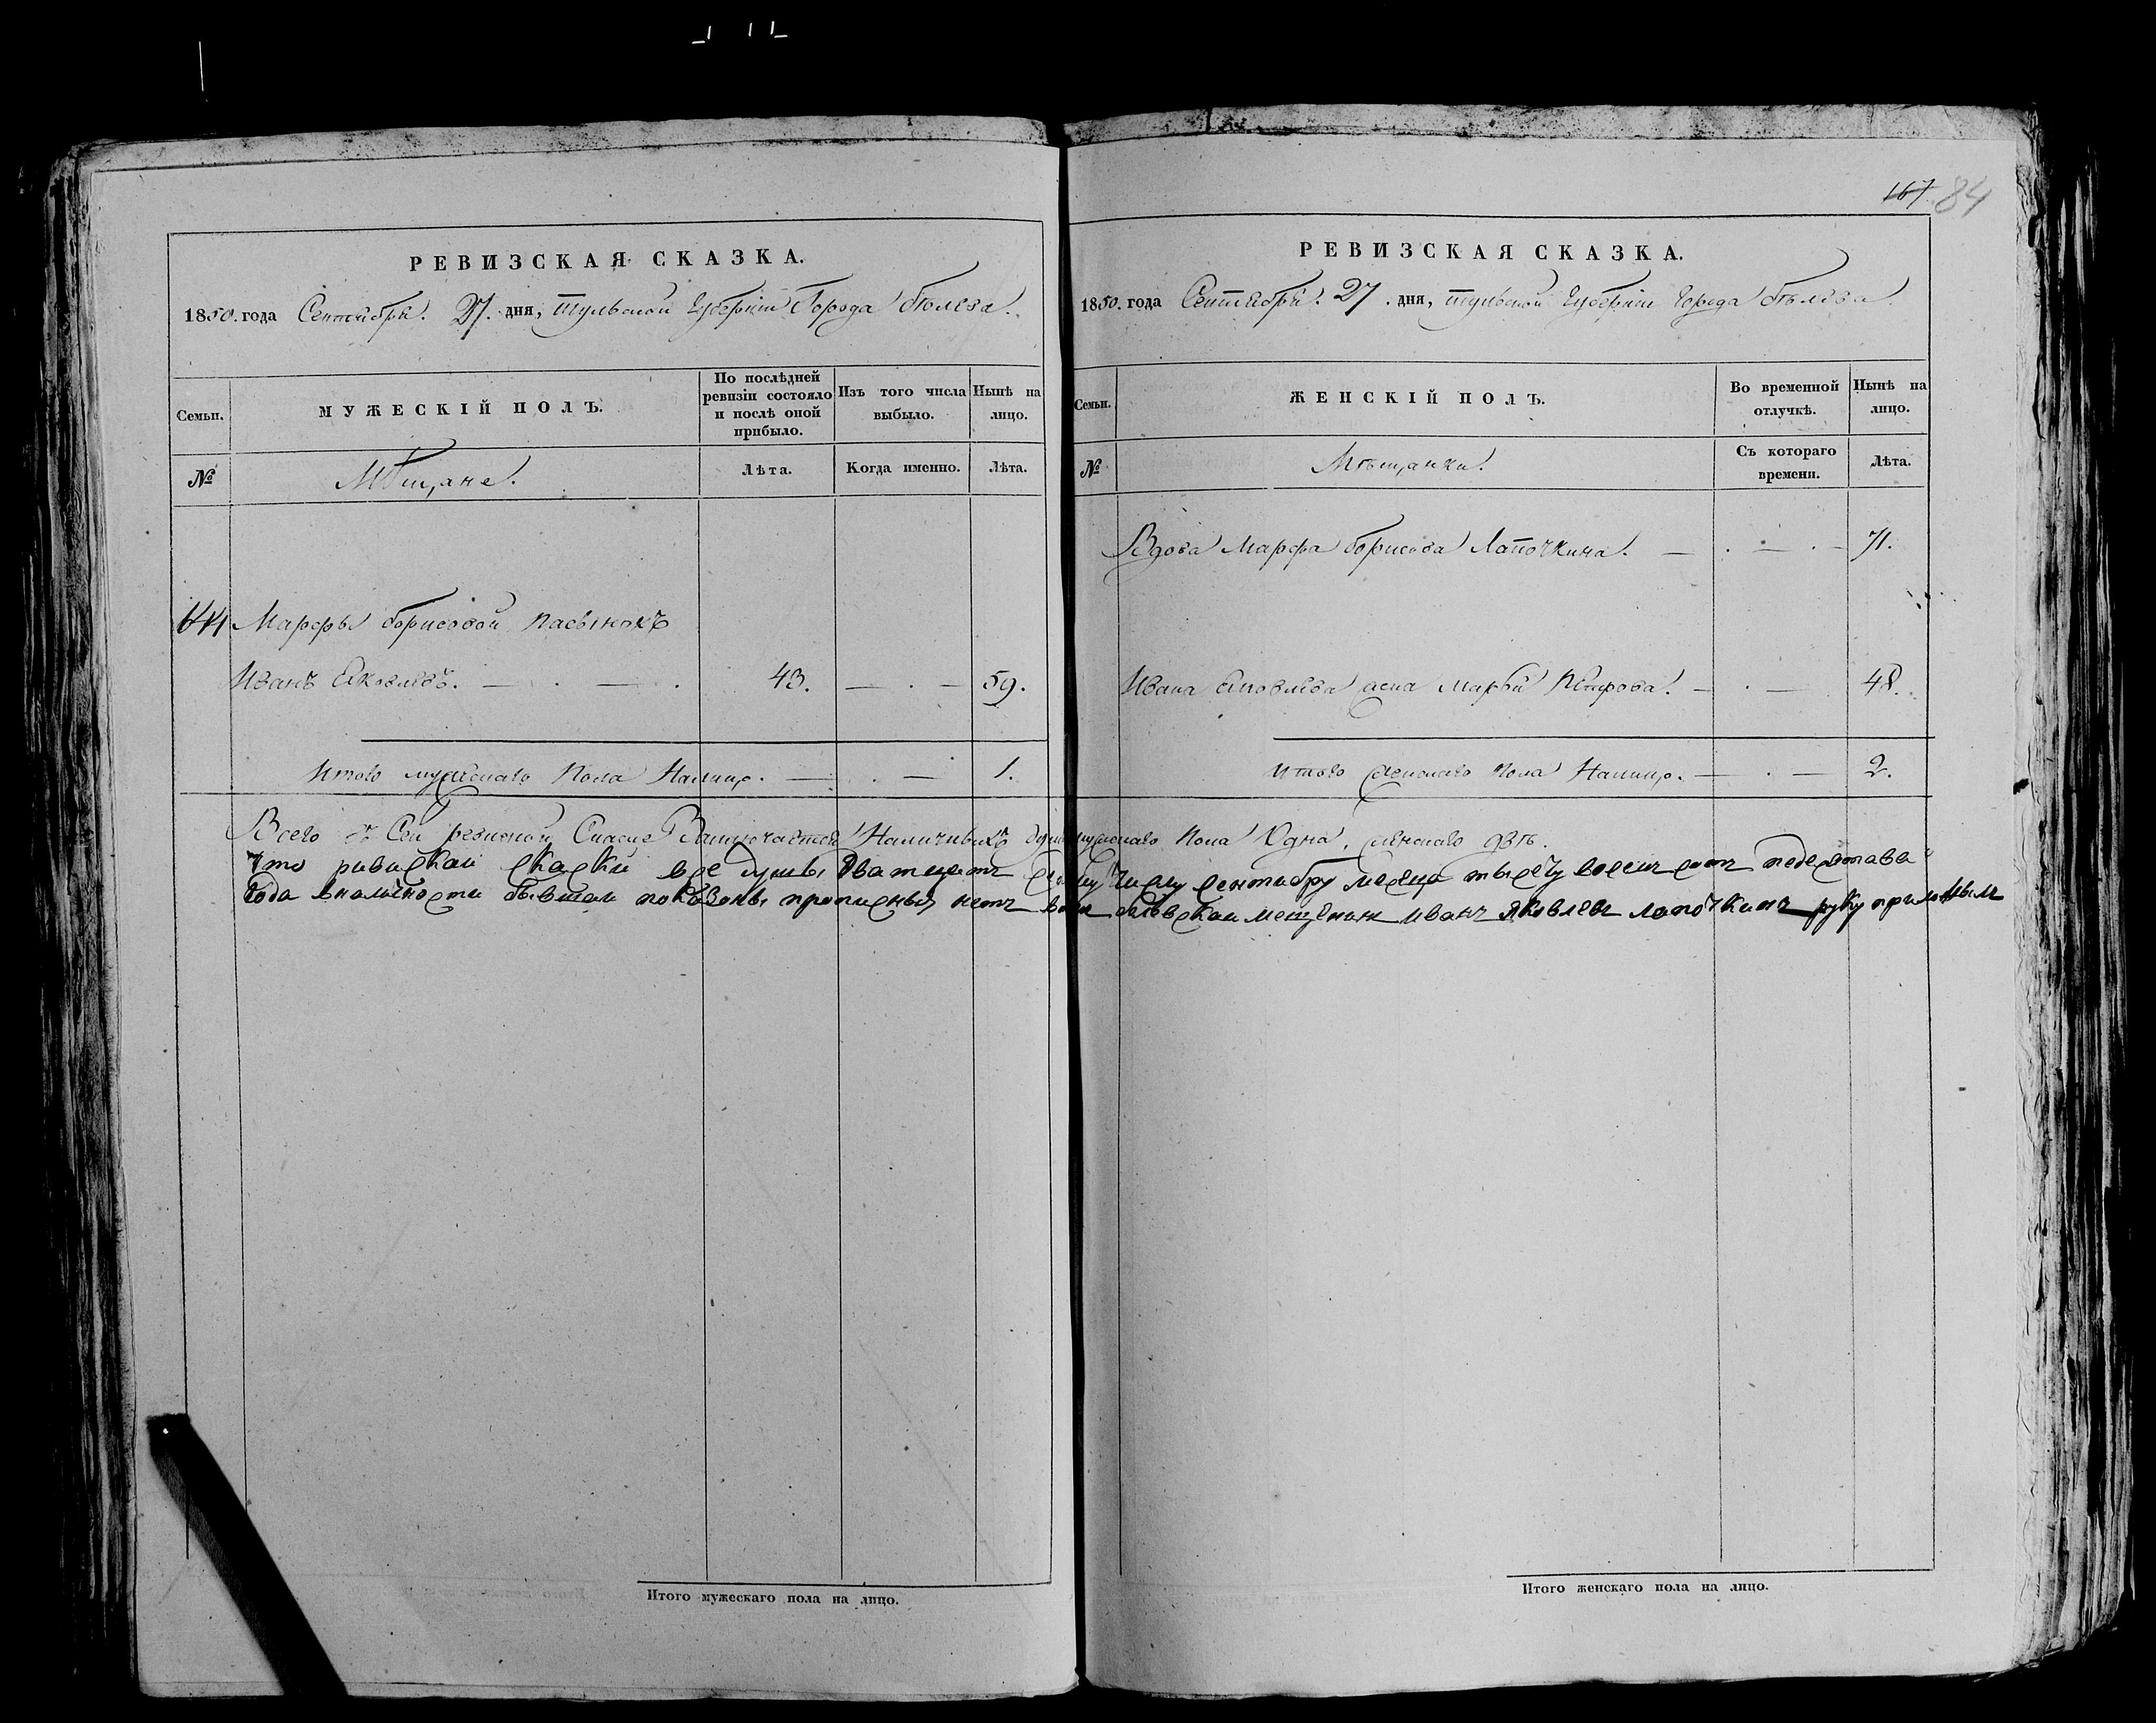 167 84
РЕВИЗСКАЯ СКАЗКА.
1850. года Сентября. 27. дня, Тульской Губерніи Города Бѣлева.
Семьи.
МУЖЕСКІЙ ПОЛЪ.
По послѣдней ревизіи состояло и послѣ оной прибыло.
Изъ того числа выбыло.
Нынѣ на лицо.
№
Мѣщане.
Лѣта.
Когда именно.
Лѣта.
Марфы Борисовой пасынокъ
Иванъ Яковлевъ. — . — . 43. — . — 59.
Итого мужескаго пола Налицо. — . — 1.
РЕВИЗСКАЯ СКАЗКА.
1850. года Сентября. 27. дня, Тульской Губерніи Города Бѣлева.
Семьи.
ЖЕНСКІЙ ПОЛЪ.
Во временной отлучкѣ.
Нынѣ на лицо.
№
Мѣщанки.
Съ котораго времени.
Лѣта.
Вдова Марфа Борисова Лапочкина. — . — . — 71.
Ивана Яковлева жена Марья Петрова. — . — 48.
Итого женскаго пола Налицо. — . — 2.
Всего въ Сей ревизской Сказке Заключается Наличныхъ душъ мужескаго пола Одна, женскаго двѣ.
что ривиской скаски все душы дватцеть числу сентебру месеца тысечу восемь сот педесятава
года вналичности бывшаи показоны прописных неть бѣлевскаи мещенин иван яковлев лапочкинъ руку приложыл
Итого мужескаго пола на лицо.
Итого женскаго пола на лицо.